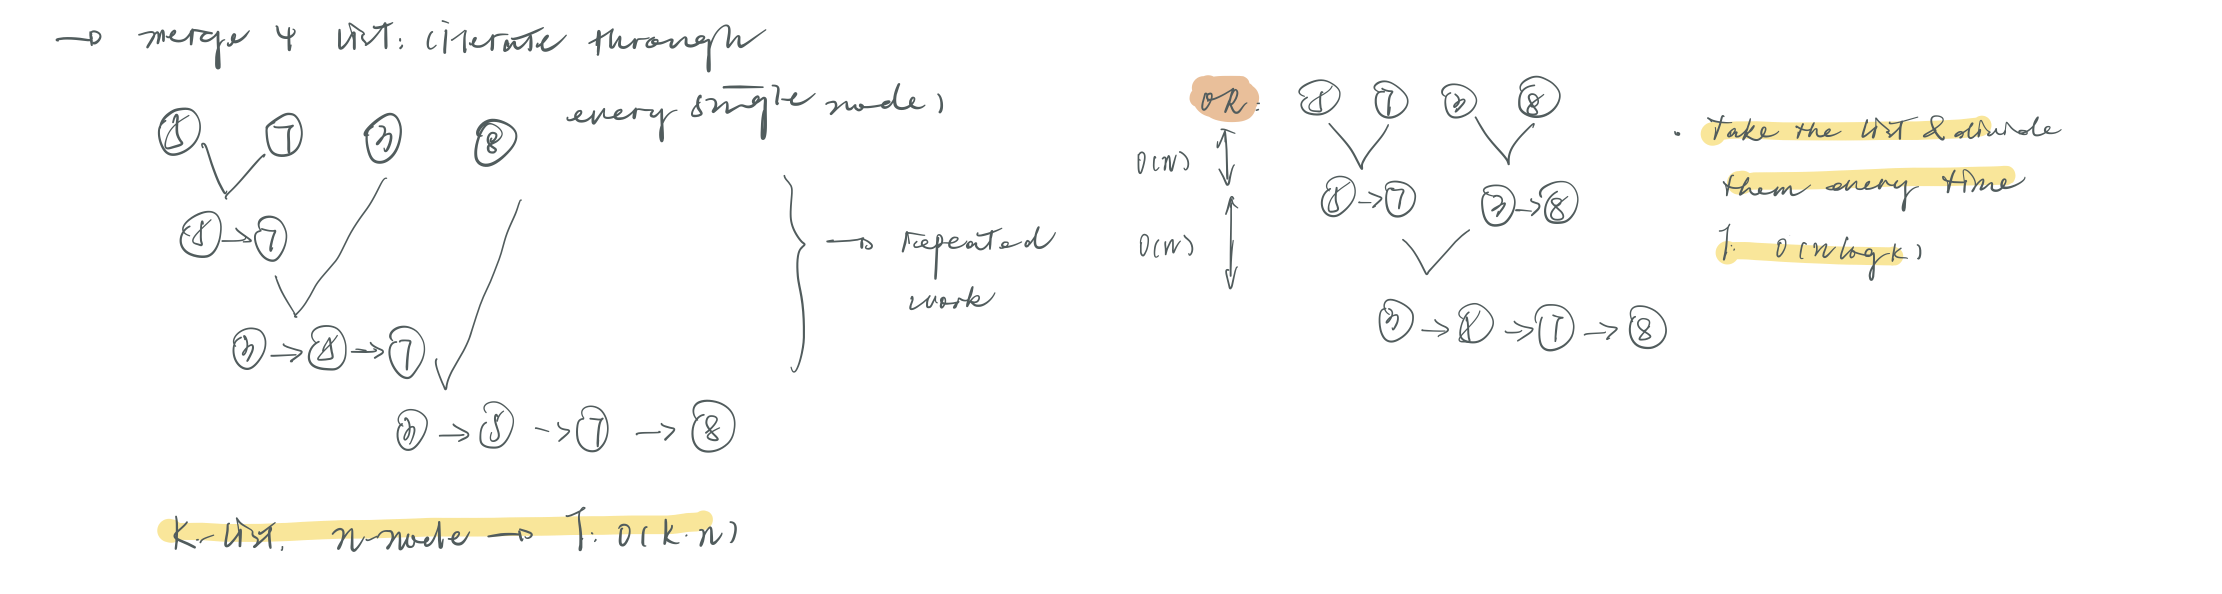 → merge 4 list: (iterate through
every single node)
5 7 3 8
5 → 7
3 → 5 → 7
3 → 5 → 7 → 8
→ repeated
work
k-list, n-node → T: O(k·n)
OR: 5 7 3 8
O(N)
5 → 7 3 → 8
O(N)
3 → 5 → 7 → 8
• Take the list & divide
them every time
T: O(n log k)